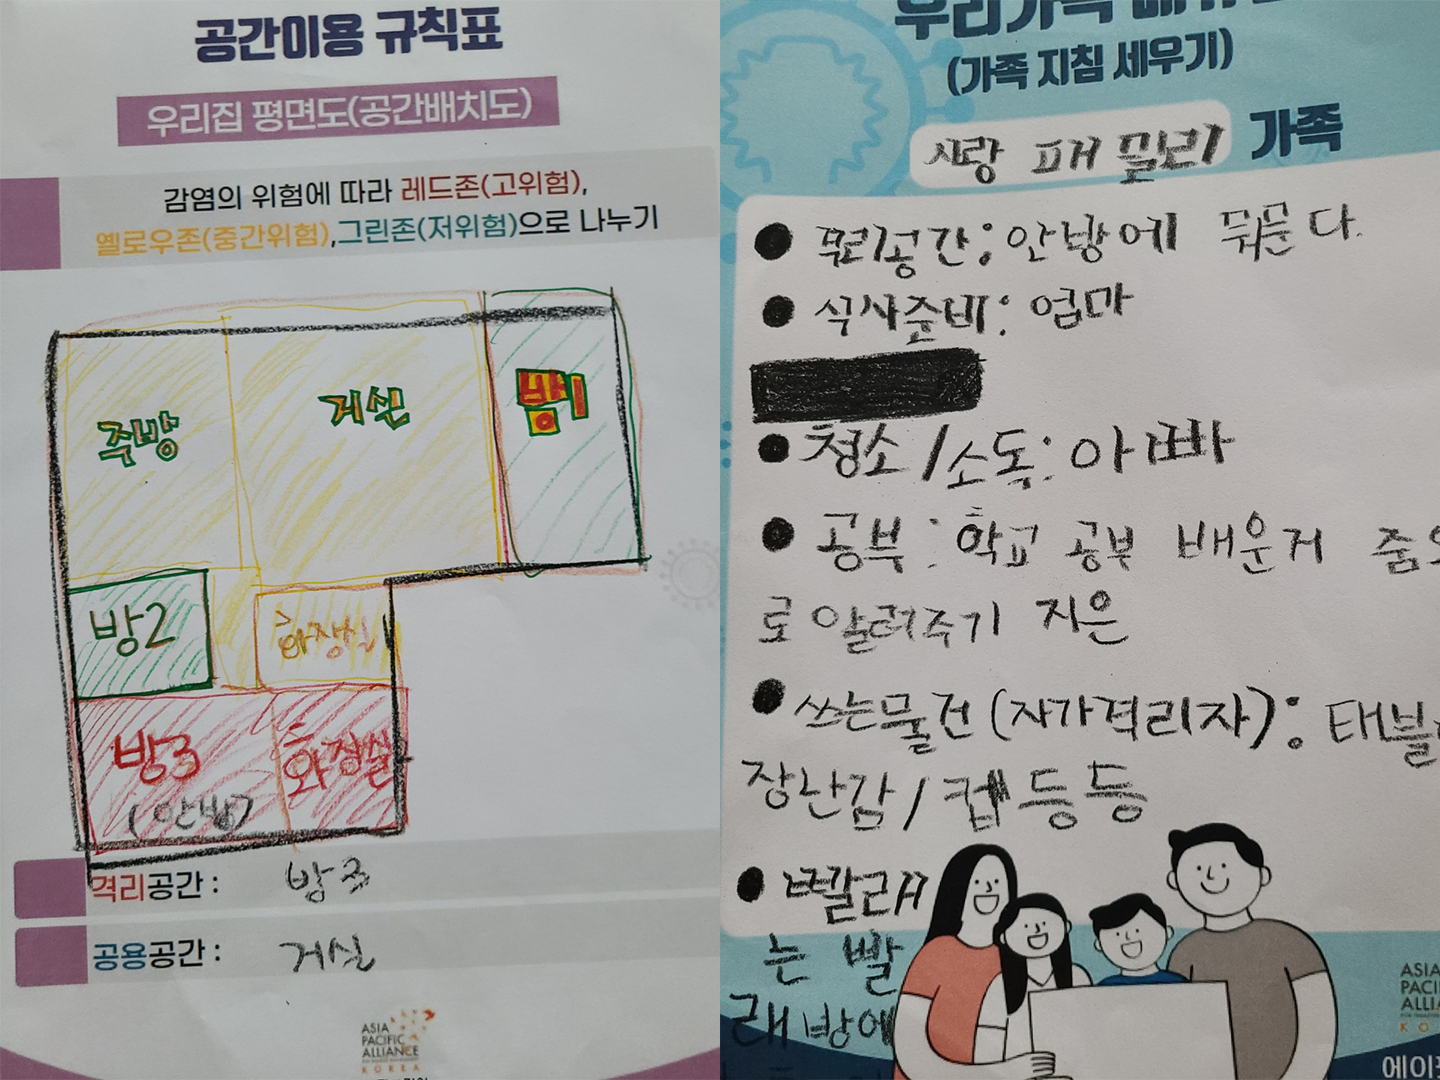 공간이용 규칙표
우리집 평면도(공간배치도)
감염의 위험에 따라 레드존(고위험),
옐로우존(중간위험),그린존(저위험)으로 나누기
주방
거실
방1
방2
화장실
방3
(안방)
화장실2
격리공간 : 방3
공용공간 : 거실
ASIA
PACIFIC
ALLIANCE
KOREA
우리가족
(가족 지침 세우기)
사랑 패밀리 가족
● 분리공간: 안방에
● 식사준비: 엄마
● 청소/소독: 아빠
● 공부: 학교 공부 배운거 줌으
로 알려주기 지은
● 쓰는물건(자가격리자): 태블
장난감/컵 등등
● 빨래
는 빨
래방에
ASIA
PACI
ALLI
KO
에이